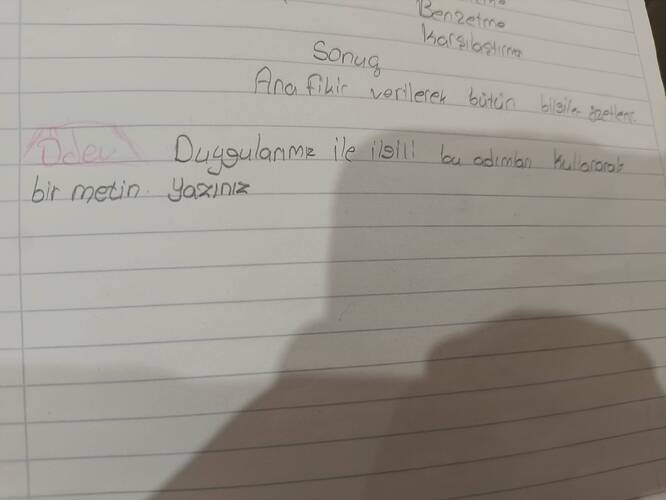 Benzetme
Karşılaştırma
Sonuç
Ana fikir verilerek bütün bilgiler özetlenir
Ödev Duygularımız ile ilgili bu adımları kullanarak
bir metin yazınız